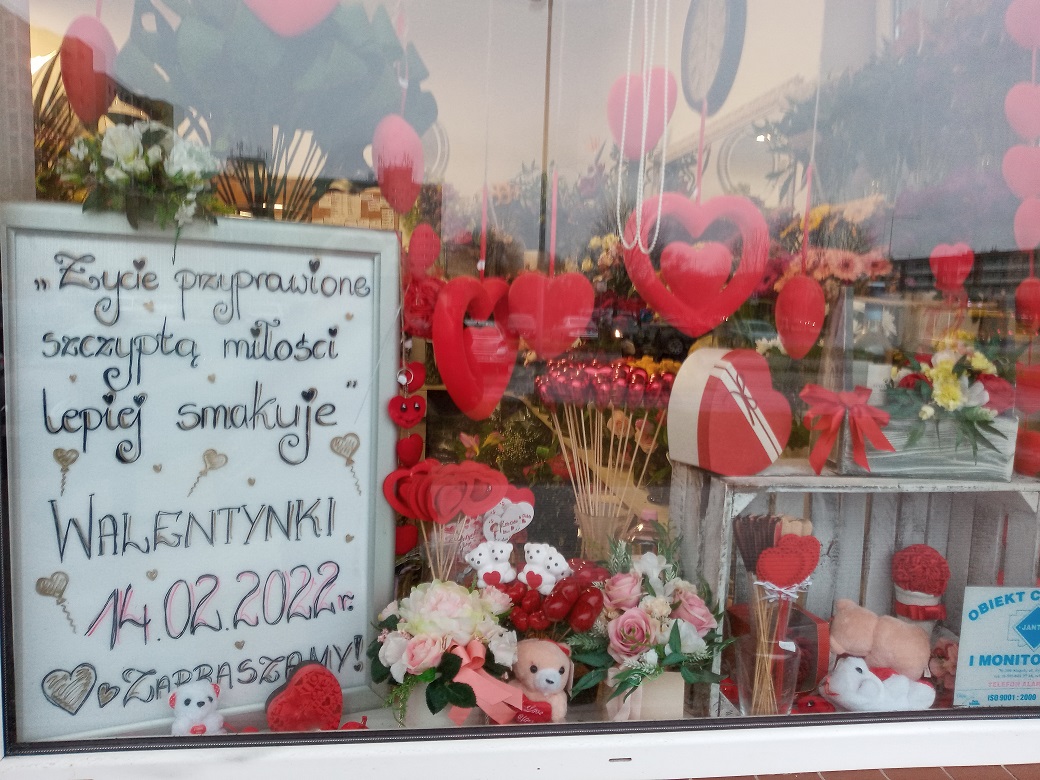 „Życie przyprawione
szczyptą miłości
lepiej smakuje"
WALENTYNKI
14.02.2022r.
ZAPRASZAMY!
OBIEKT C
JANT
I MONITO
ISO 9001:2000